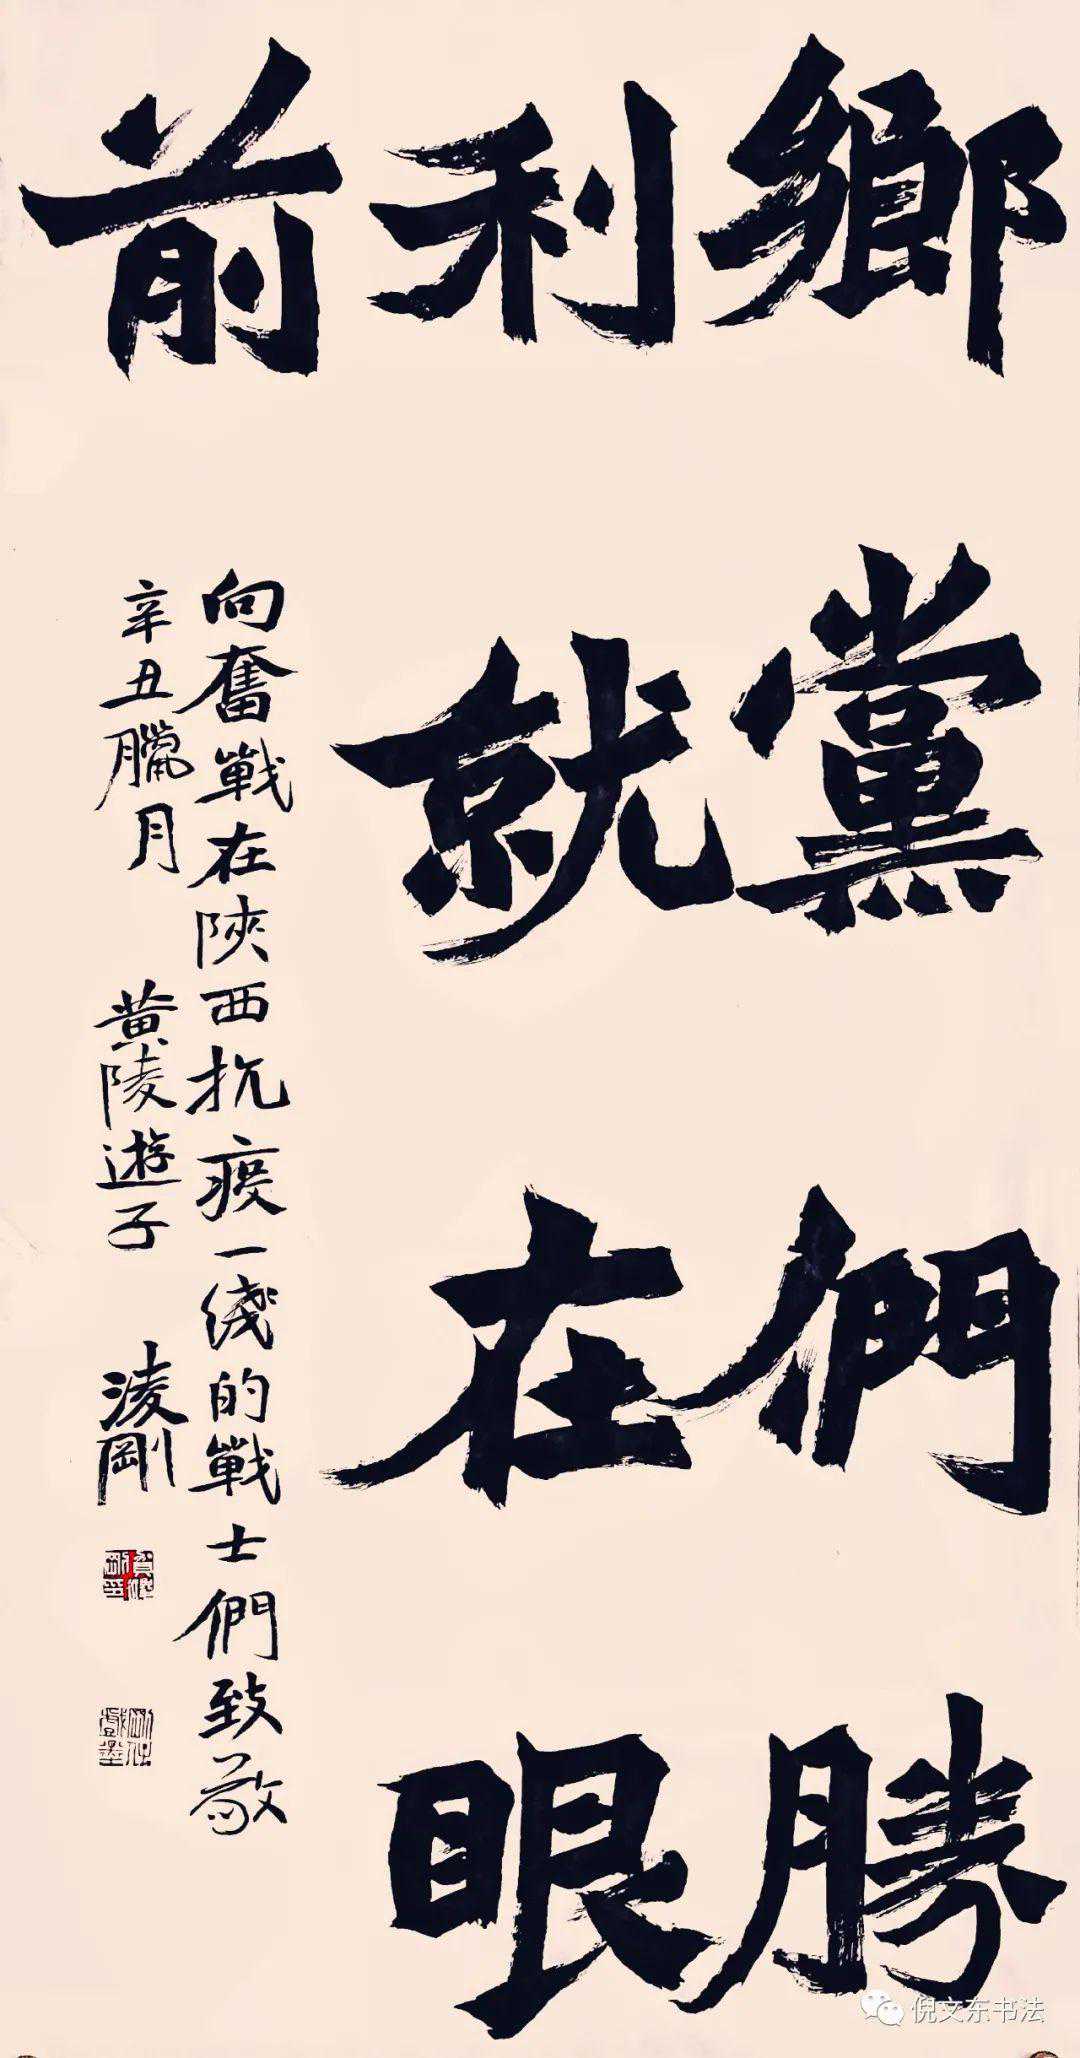 鄉黨們勝
利就在眼
前
向奮戰在陝西抗疫一綫的戰士們致敬
辛丑臘月 黃陵遊子 淩剛
倪文东书法